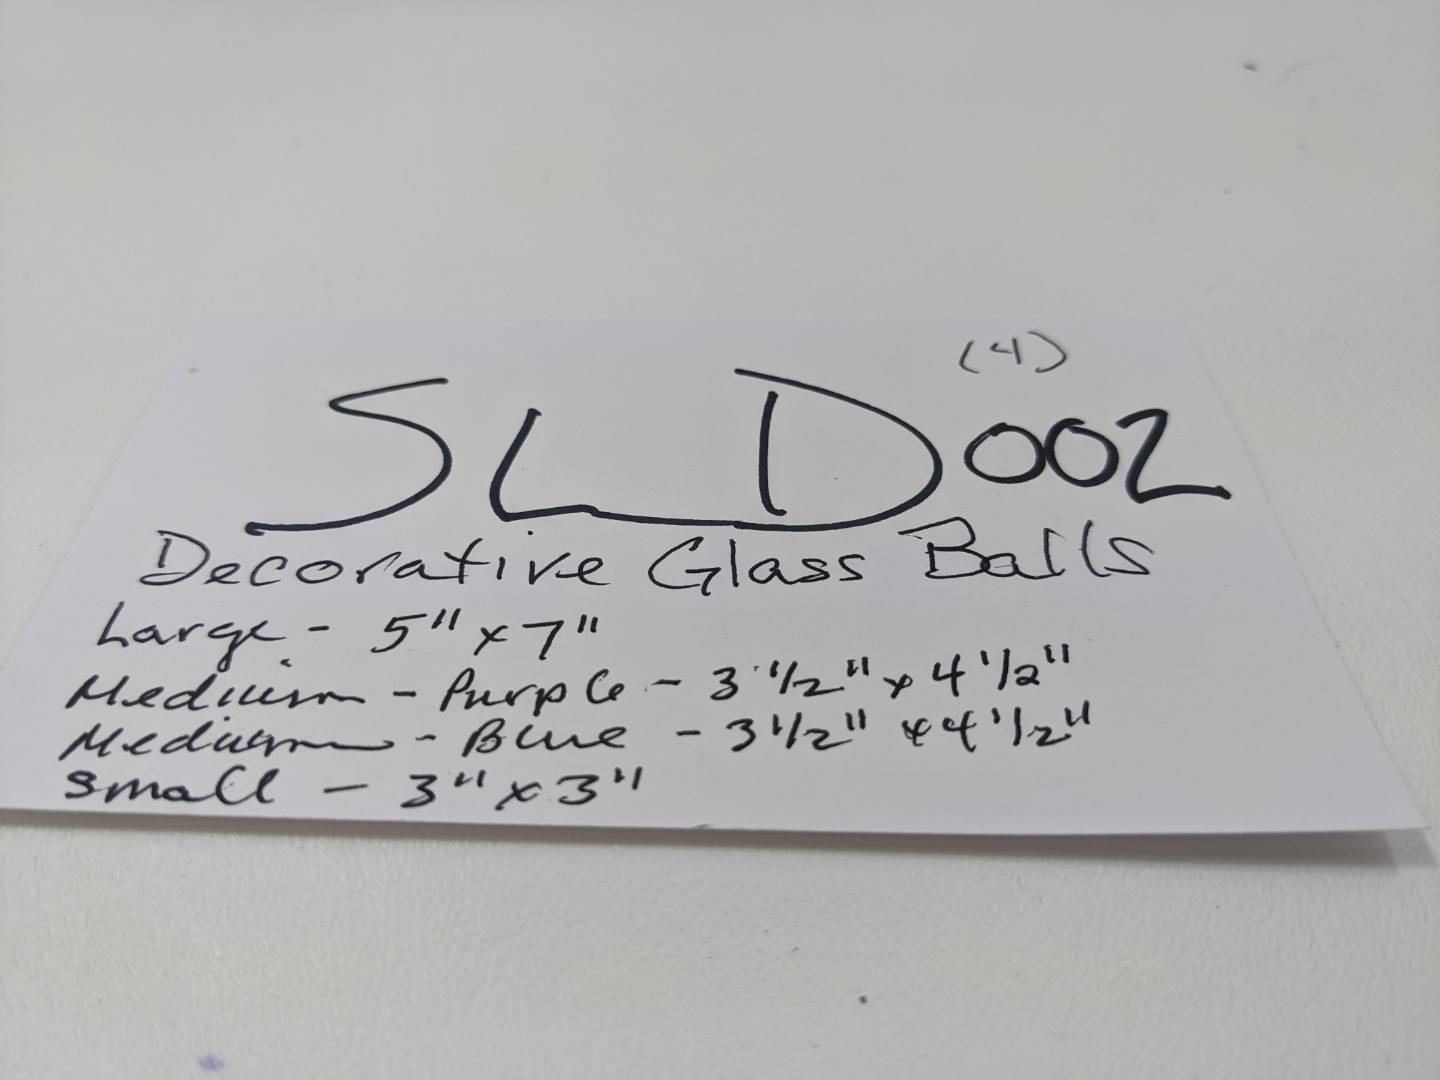 (4)
SLD002
Decorative Glass Balls
Large - 5" x 7"
Medium - Purple - 3 1/2" x 4 1/2"
Medium - Blue - 3 1/2" x 4 1/2"
Small - 3" x 3"